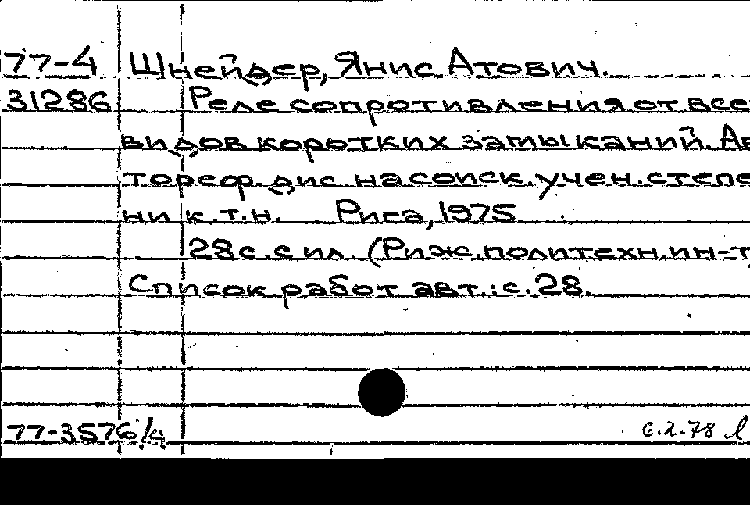 77-4 Шнейдер, Янис Атович.
31286 Реле сопротивления от всех
видов коротких замыканий. Ав
тореф. дис. на соиск. учен. степе
ни к.т.н. Рига, 1975
28с. с ил. (Риж. политехн. ин-т
Список работ авт.: с. 28.
77-3576